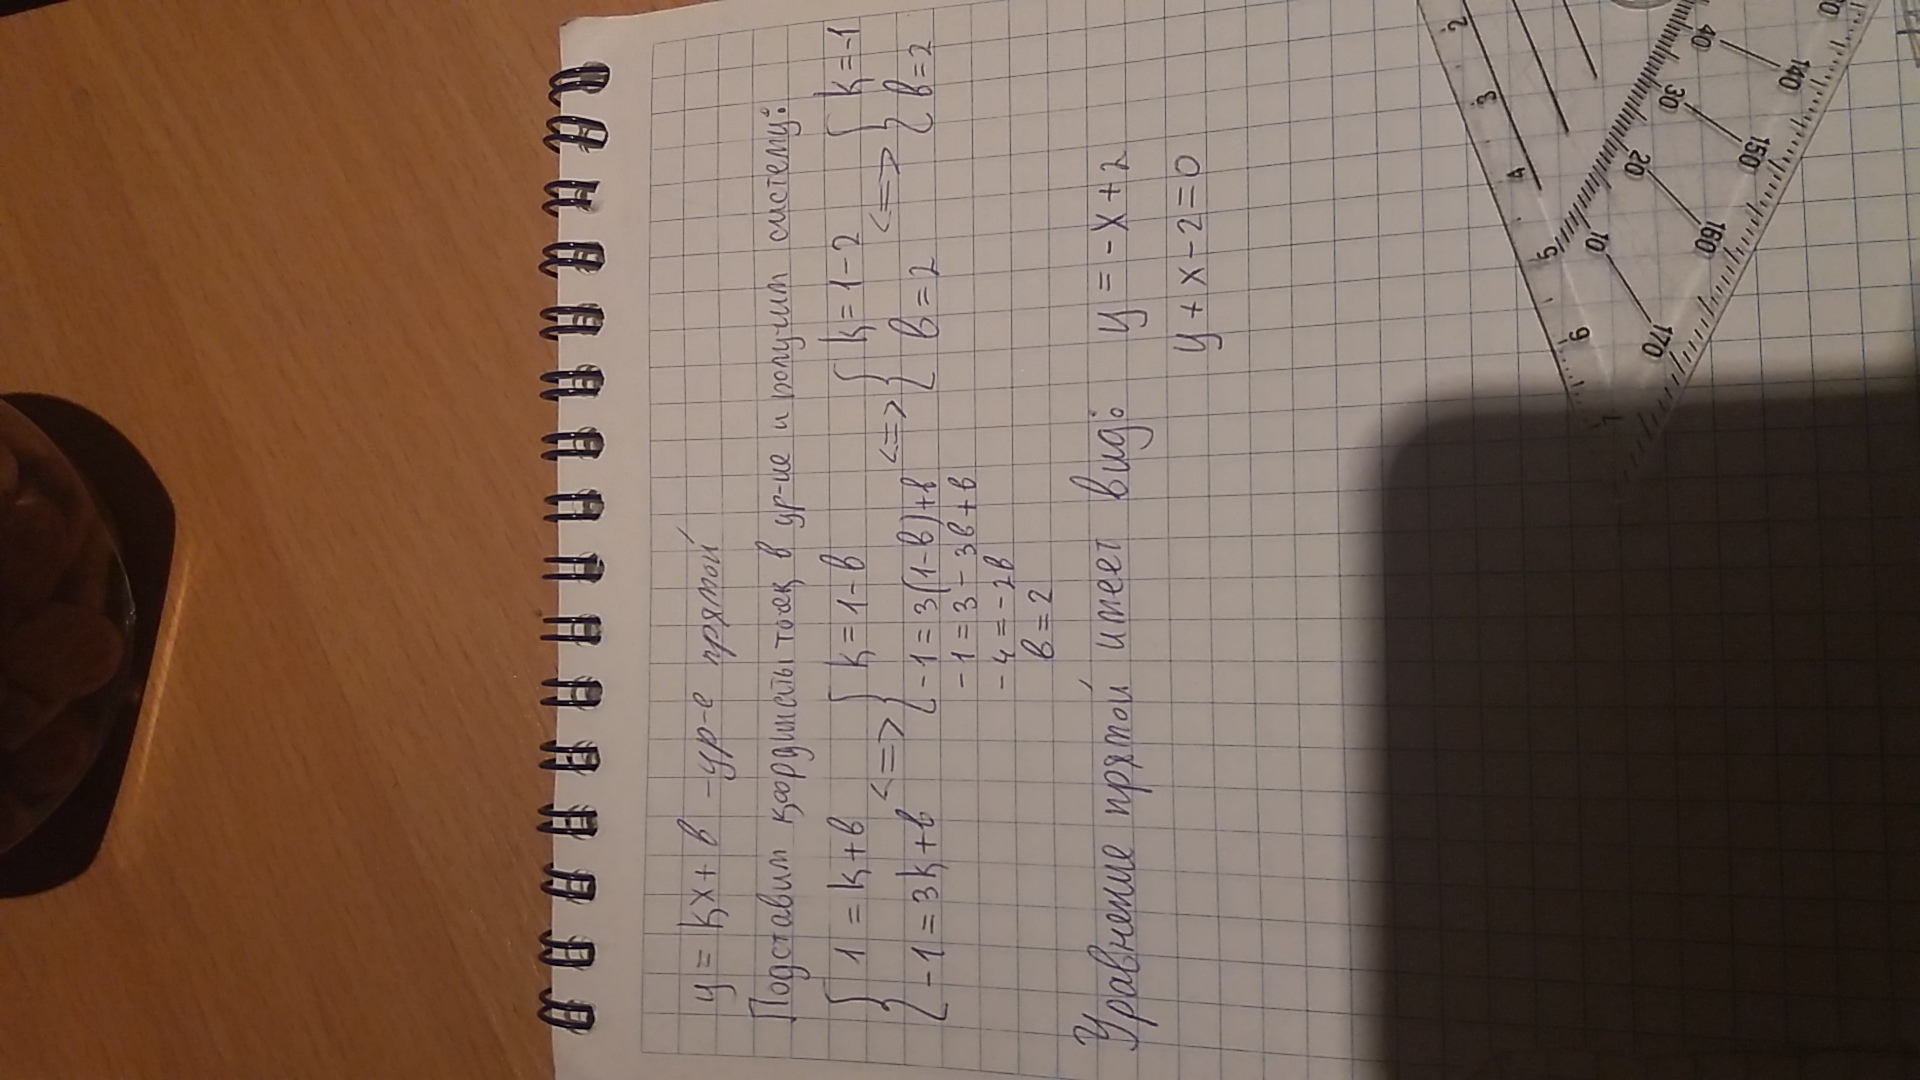 y = kx + b - ур-е прямой
Подставим координаты точек в ур-ие и получим систему:
{ 1 = k + b <=> { k = 1 - b <=> { k = 1 - 2 <=> { k = -1
{ -1 = 3k + b { -1 = 3(1 - b) + b { b = 2 { b = 2
-1 = 3 - 3b + b
-4 = -2b
b = 2
Уравнение прямой имеет вид: y = -x + 2
y + x - 2 = 0
2
3
4
5
6
7
40
30
20
10
140
150
160
170